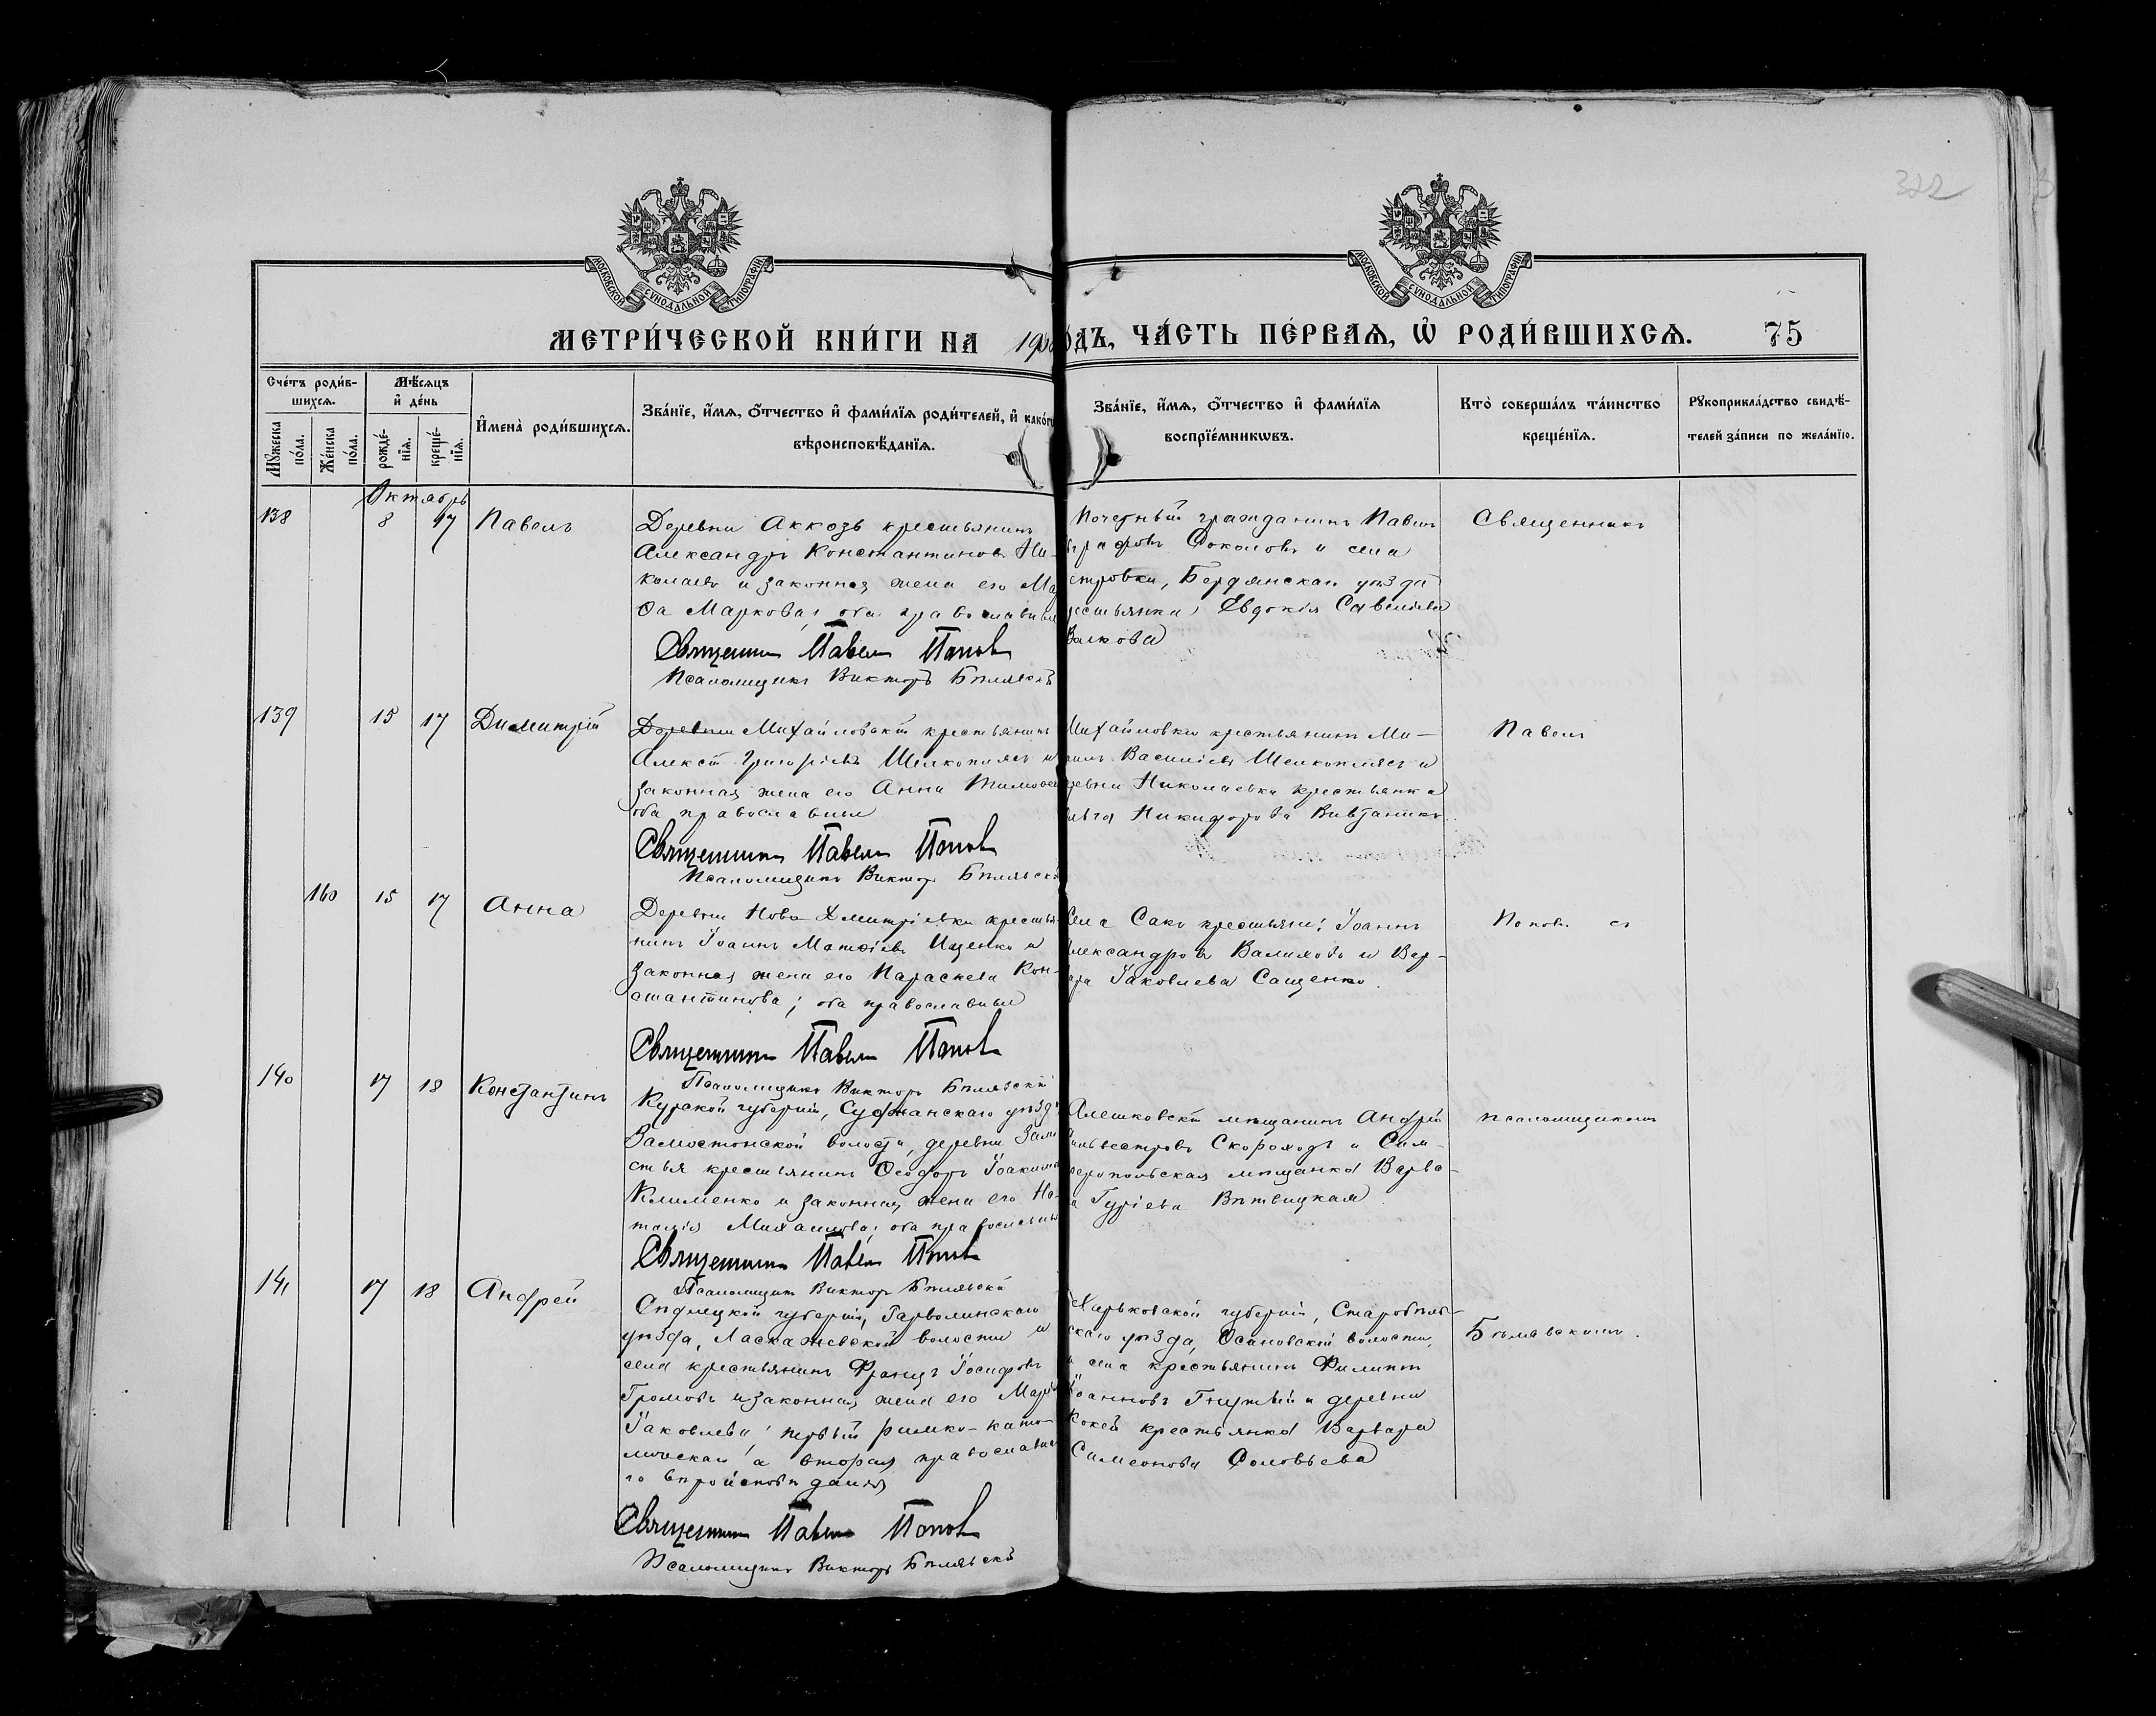 322
МОСКОВСКОЙ СѴНОДАЛЬНОЙ ТИПОГРАФІИ
МОСКОВСКОЙ СѴНОДАЛЬНОЙ ТИПОГРАФІИ
МЕТРИ́ЧЕСКОЙ КНИ́ГИ НА 190
ОДЪ, ЧА́СТЬ ПЕ́РВАѦ, Ѽ РОДИ́ВШИХСѦ. 75
Сче́тъ роди́в-
шихсѧ.
Мꙋжеска по́ла.
Же́нска по́ла.
Мѣ́сѧцъ
и҆ де́нь
рожде́-
нїѧ.
креще́-
нїѧ.
И҆мена̀ роди́вшихсѧ.
Зва́нїе, и҆́мѧ, ѻ҆́тчество и҆ фами́лїѧ роди́телей, и҆ како́гѡ
вѣроисповѣ́данїѧ.
Зва́нїе, и҆́мѧ, ѻ҆́тчество и҆ фами́лїѧ
воспрїе́мникѡвъ.
Кто̀ соверша́лъ та́инство
креще́нїѧ.
Рꙋкоприкла́дство свидѣ́-
телей за́писи по жела́нїю.
Октябрь
138 8 17 Павелъ
Деревни Аккозъ крестьянинъ
Александръ Константиновъ Ни-
колаевъ и законная жена его Ма
Ѳа Маркова, оба православные
Священникъ Павелъ Поповъ
Псаломщикъ Викторъ Бѣлявскій
Почетный гражданинъ Павелъ
графовъ Соколовъ и села
стровки, Бердянскаго уѣзда
рестьянка Евдокія Савельева
Валкова
Священникъ
139 15 17 Димитрій
Деревни Михайловкй крестьянинъ
Алексѣй Григорьевъ Шелкоплясъ и
законная жена его Анна Тимоѳе
оба православные
Священникъ Павелъ Поповъ
Псаломщикъ Викторъ Бѣлявскі
Михайловки крестьянинъ Ми-
илъ Василіевъ Шелкоплясъ и
ревни Николаевки крестьянка
Никифорова
Павелъ
160 15 17 Анна
Деревни Ново-Дмитріевки крестья-
нинъ Іоаннъ Матѳіевъ Ищенко и
законная жена его Параскева Кон-
стантинова; оба православные
Священникъ Павелъ Поповъ
Псаломщикъ Викторъ Бѣлявскій
Села Саки крестьяне: Іоаннъ
лександровъ Валиховъ и Вар-
ара Іаковлева Сащенко.
Поповъ съ
140 17 18 Константинъ
Курской губерніи, Суджанскаго уѣзда
Замостянской волости, деревни Замо
стья крестьянинъ Ѳеодоръ Іоакимо
Клименко и законная жена его На-
талія Михаилова; оба православные
Священникъ Павелъ Поповъ
Псаломщикъ Викторъ Бѣлявскій
Алешковскій мѣщанинъ Андрей
ильвестровъ Скороходъ и Сим-
еропольская мѣщанка Варва-
а Гуріева Вѣтвицкая
псаломщикомъ
141 17 18 Андрей
Сѣдлецкой губерніи, Гарволинскаго
уѣзда, Ласкажевской волости и
села крестьянинъ Францъ Іосифовъ
Громовъ и законная жена его Марія
Іаковлева; первый римско-като-
лическаго а вторая православна
го вѣроисповѣданія
Священникъ Павелъ Поповъ
Псаломщикъ Викторъ Бѣлявскій
Харьковской губерніи, Старобѣль-
скаго уѣзда, Осиновской волости,
и села крестьянинъ Филиппъ
Іоанновъ Гнутый и деревни
Кокей крестьянка Варвара
Симеонова Соловьева
Бѣлявскимъ.